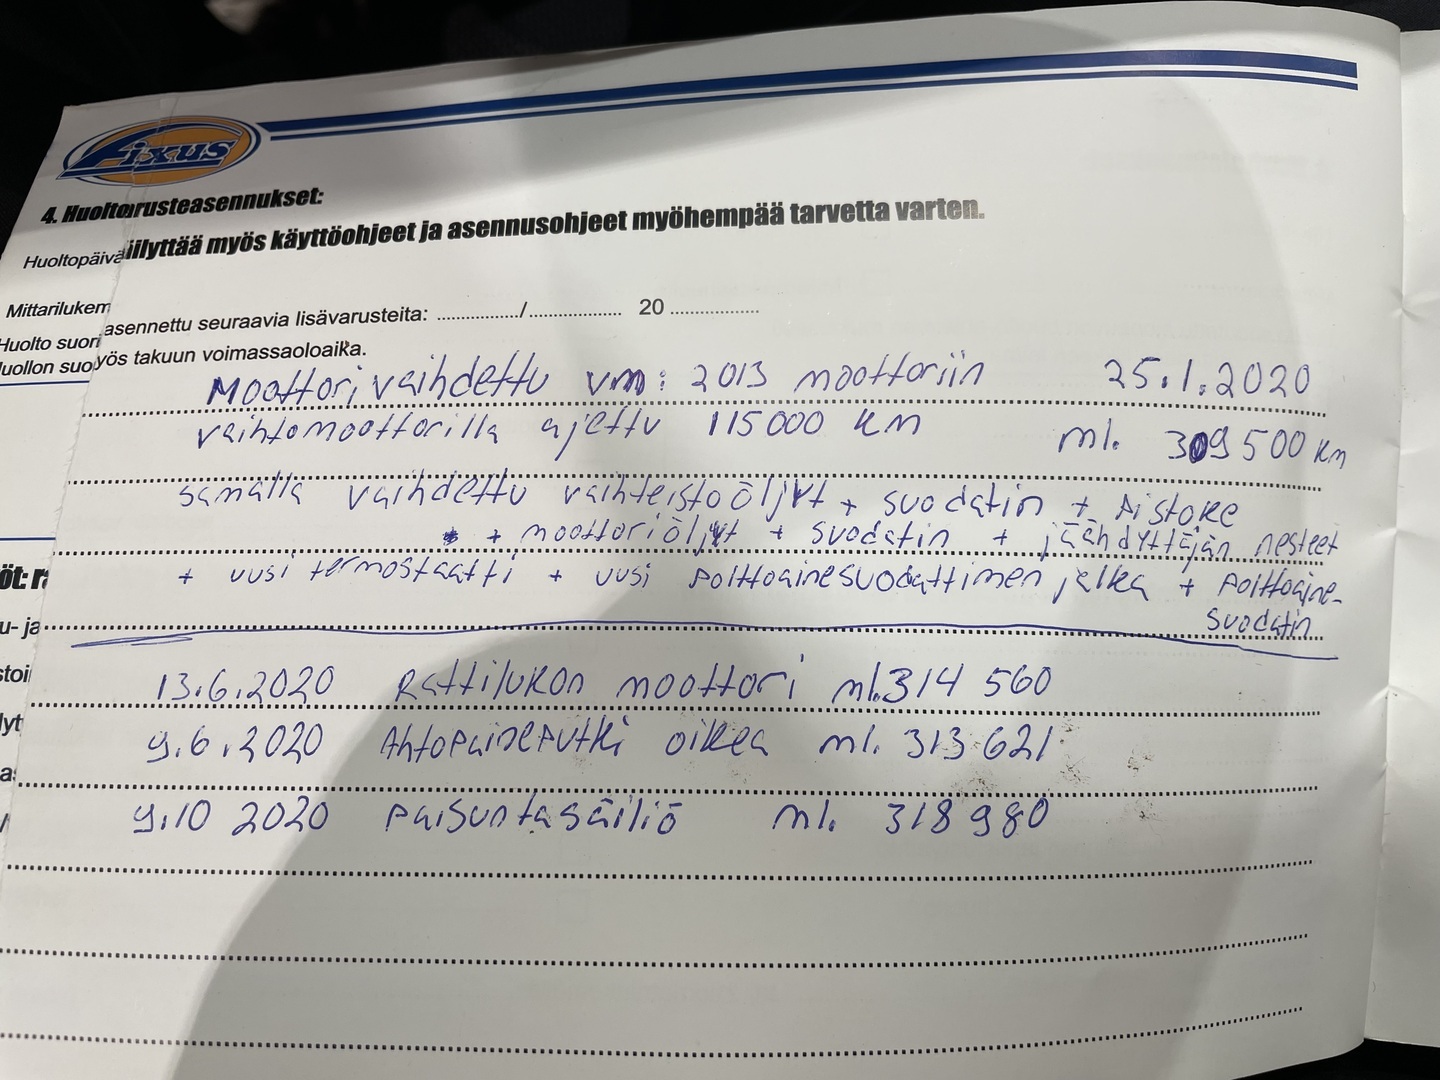 Fixus
4. Huoltorusteasennukset:
Huoltopäivä iilyttää myös käyttöohjeet ja asennusohjeet myöhempää tarvetta varten.
Mittarilukem
asennettu seuraavia lisävarusteita: ............../................... 20 ..................
Huolto suori
yös takuun voimassaoloaika.
uollon suo
Moottori vaihdettu vm: 2013 moottoriin 25.1.2020
vaihtomoottorilla ajettu 115000 km ml. 309 500 km
samalla vaihdettu vaihteistoöljyt + suodatin + pistoke
+ moottoriöljyt + suodatin + jäähdyttäjän nesteet
+ uusi termostaatti + uusi polttoainesuodattimen jalka + polttoaine-
suodatin
öt: ra
u- ja
stoi
13.6.2020 Rattilukon moottori ml.314 560
lyt
9.6.2020 Ahtopaineputki oikea ml. 313 621
9.10 2020 paisuntasäiliö ml. 318 980